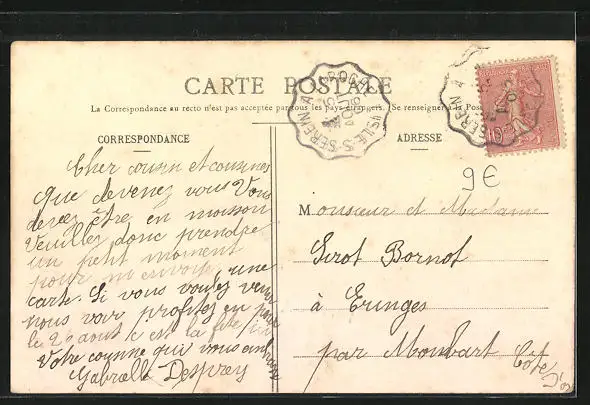 CARTE POSTALE
La Correspondance au recto n'est pas acceptée par tous les pays étrangers. (Se renseigner à la Poste
CORRESPONDANCE
Cher cousin et cousines
que devenez vous Vous
devez être en moisson
Veuillez donc prendre
un petit moment
pour une
carte. Si vous voulez venir
nous voir profitez en pour
le 20 aout c'est la fête
Votre
qui vous embrasse
Gabrielle Desprey
ADRESSE
9€
Monsieur et Madame
Sirot Bornot
à Eringes
par Montbart Côte
d'or
10